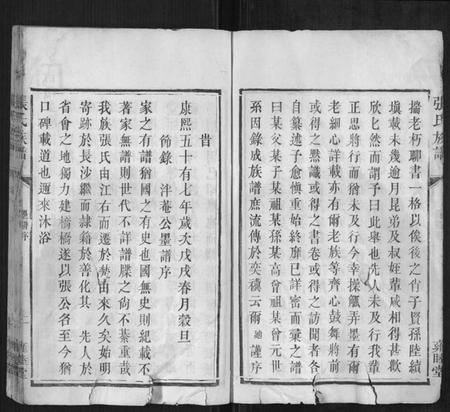 張氏族譜
搢老朽聊書一格以俟後之肖子賢孫陸續
塡載未幾逾月昆弟及叔姪輩咸相得甚歡
欣匕然而謂予曰此舉也先人未及行我輩
正思將行而猶未及行今幸操觚弄墨有爾
老細心詳載亦有爾老彼等齊心鼓舞將前
或得之默識或得之書卷或得之訪聞者各
自纂述子愈愼重始終靡已詳密而彙之譜
曰某父某子某祖某孫某高曾祖某曾元世
系因錄成族譜庶流傳於奕禩云爾 謹序
雍睦堂
昔
康熙五十有七年歲次戊戌春月穀旦
節錄 泮菴公墨譜序
家之有譜猶國之有史也國無史則紀載不
著家無譜則世代不詳譜牒之尙不綦重哉
我族張氏由江右而遷於楚由來久矣始明
寄跡於長沙繼而隷籍於善化其 先人於
省會之地獨力建橋橋遂以張公名至今猶
口碑載道也邇來沐浴
張氏族譜
墨譜序